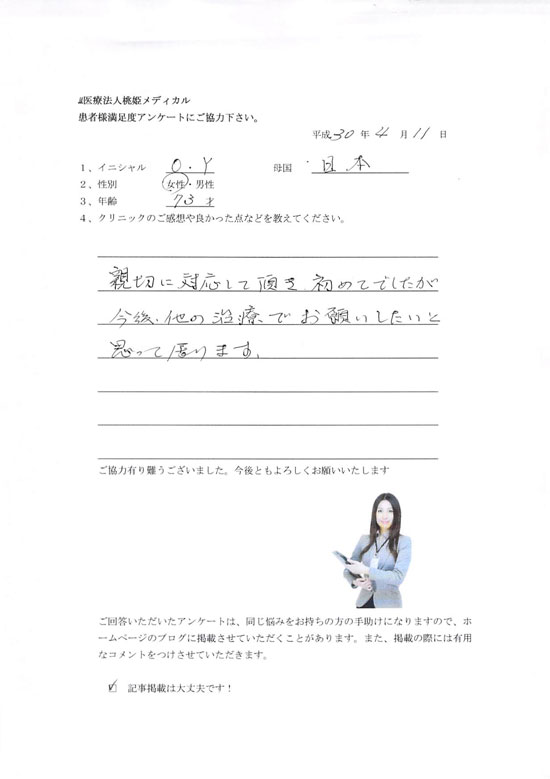 医療法人桃姫メディカル
患者様満足度アンケートにご協力下さい。
平成 30 年 4 月 11 日
1、イニシャル O・Y 母国 日本
2、性別 女性・男性
3、年齢 73才
4、クリニックのご感想や良かった点などを教えてください。
親切に対応して頂き初めてでしたが
今後、他の治療でお願いしたいと
思って居ります。
ご協力有り難うございました。今後ともよろしくお願いいたします
ご回答いただいたアンケートは、同じ悩みをお持ちの方の手助けになりますので、ホ
ームページのブログに掲載させていただくことがあります。また、掲載の際には有用
なコメントをつけさせていただきます。
☑ 記事掲載は大丈夫です！